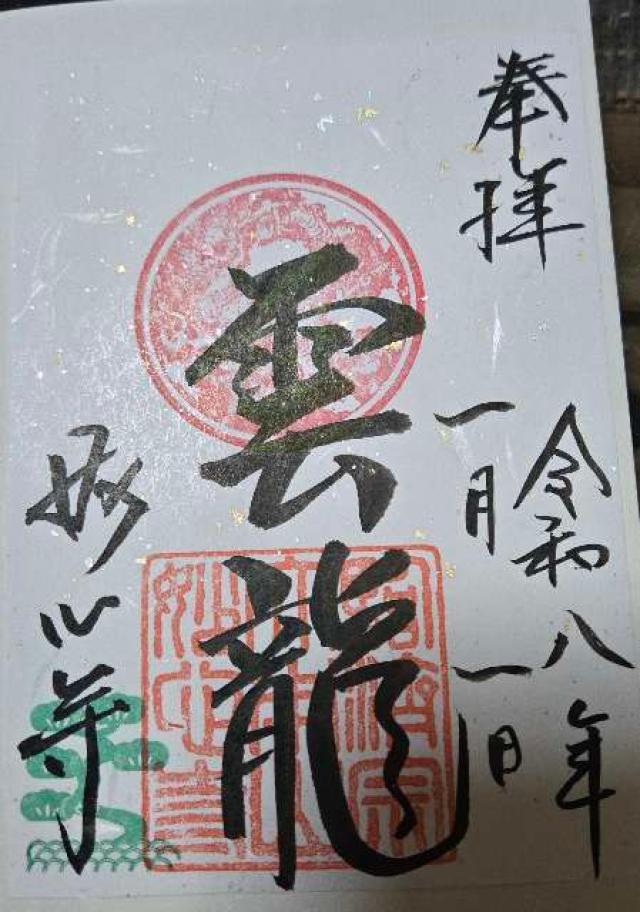 奉拝
令和八年
一月一日
雲龍
妙心寺